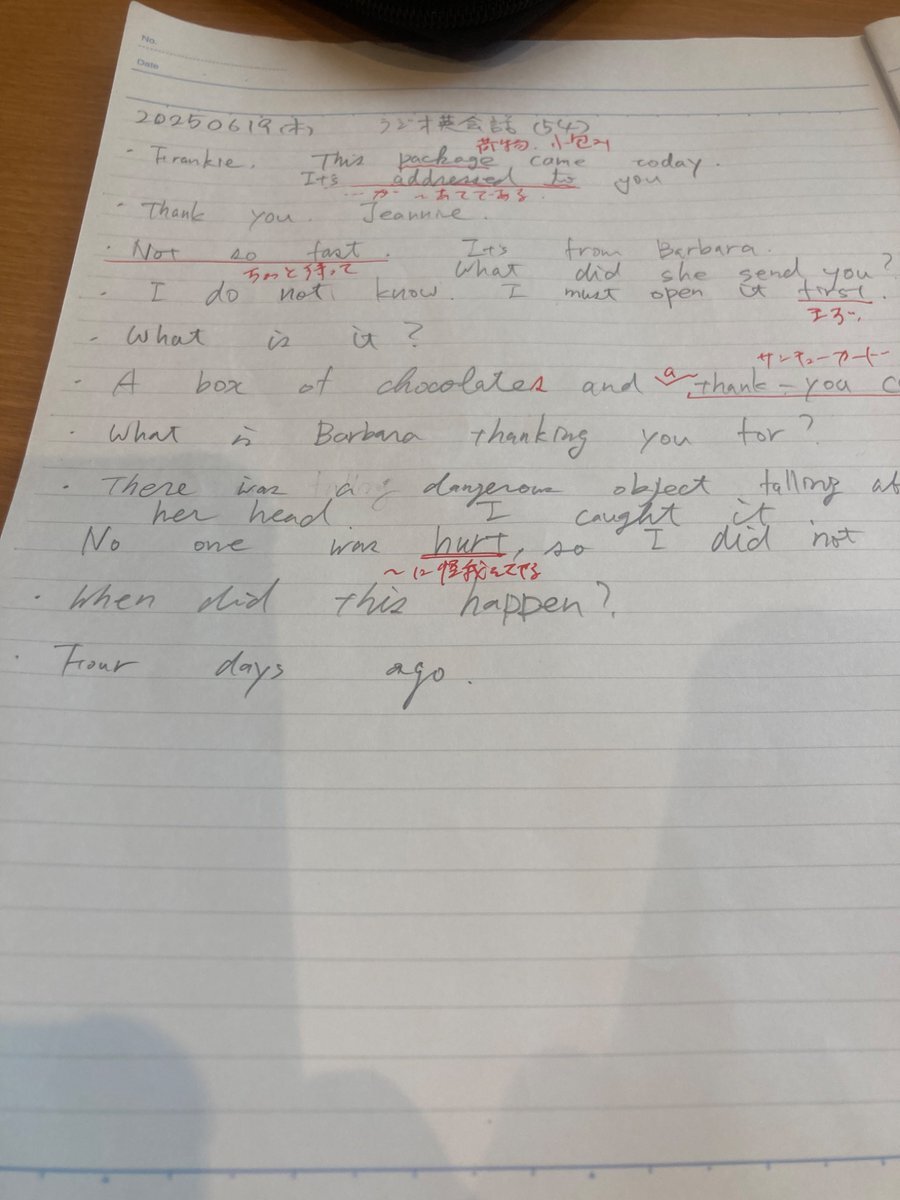 No.
Date
20250619(木) ラジオ英会話 (54)
荷物、小包み
・Frankie. This package came today.
It's addressed to you
…が〜あててある
・Thank you. Jeannine.
・Not so fast. It's from Barbara.
ちょっと待って What did she send you?
・I do not know. I must open it first.
まず
・What is it?
サンキューカード
・A box of chocolates and a thank-you
・What is Barbara thanking you for?
・There was a dangerous object falling at
her head I caught it
No one was hurt, so I did not
〜に怪我をさせる
・When did this happen?
・Four days ago.